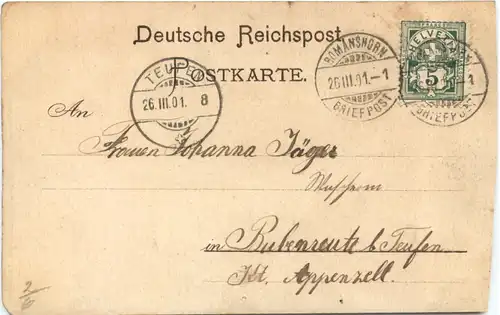 Deutsche Reichspost
POSTKARTE.
ROMANSHORN
26.III.01.-1
BRIEFPOST
HELVETIA
5
1
BRIEFPOST
TEUFEN
26.III.01. 8
An
Frauen Johanna Jäger
in Bubenreute b. Teufen
Kt. Appenzell.